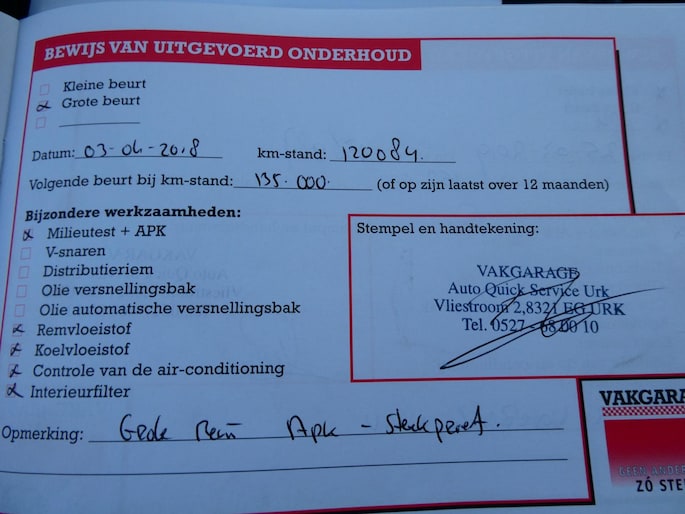 BEWIJS VAN UITGEVOERD ONDERHOUD
Kleine beurt
Grote beurt
Datum: 03-04-2018 km-stand: 120084.
Volgende beurt bij km-stand: 135.000. (of op zijn laatst over 12 maanden)
Bijzondere werkzaamheden:
Milieutest + APK
V-snaren
Distributieriem
Olie versnellingsbak
Olie automatische versnellingsbak
Remvloeistof
Koelvloeistof
Controle van de air-conditioning
Interieurfilter
Stempel en handtekening:
VAKGARAGE
Auto Quick Service Urk
Vliestroom 2,8321 EG URK
Tel. 0527 - 68 00 10
Opmerking: Apk -
VAKGARA
GEEN ANDER
ZÓ STE